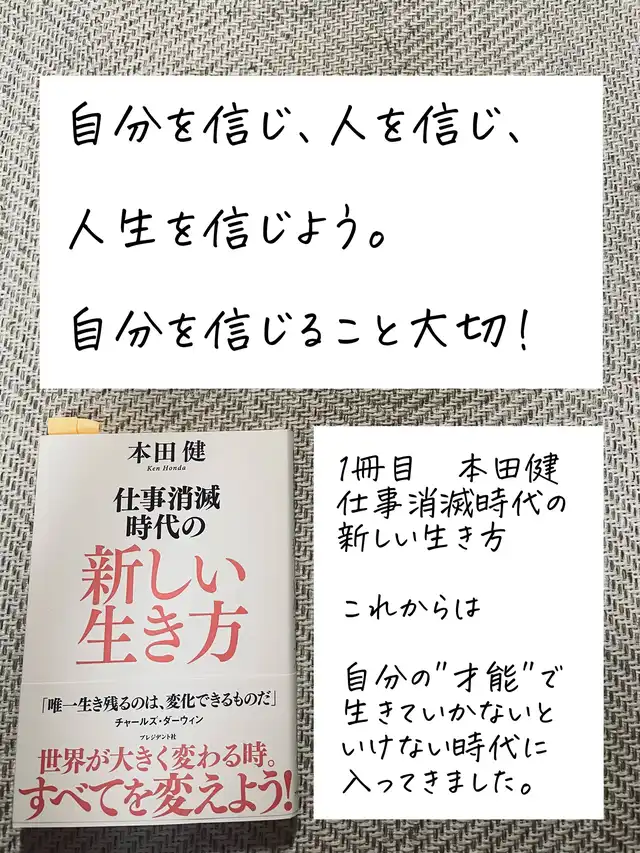 自分を信じ、人を信じ、
人生を信じよう。
自分を信じること大切!
本田 健
Ken Honda
仕事消滅
時代の
新しい
生き方
「唯一生き残るのは、変化できるものだ」
チャールズ・ダーウィン
プレジデント社
世界が大きく変わる時。
すべてを変えよう!
1冊目 本田健
仕事消滅時代の
新しい生き方
これからは
自分の"才能"で
生きていかないと
いけない時代に
入ってきました。